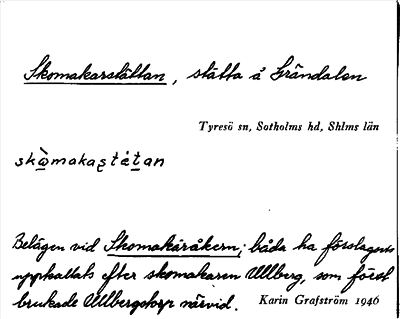 Skomakarstättan, stätta å Grändalen
Tyresö sn, Sotholms hd, Shlms län
skòmakaștétan
Belägen vid Skomakaråkern; båda ha förslagsvis
uppkallats efter skomakaren Ullberg, som först
brukade Ullbergstorp närvid. Karin Grafström 1946